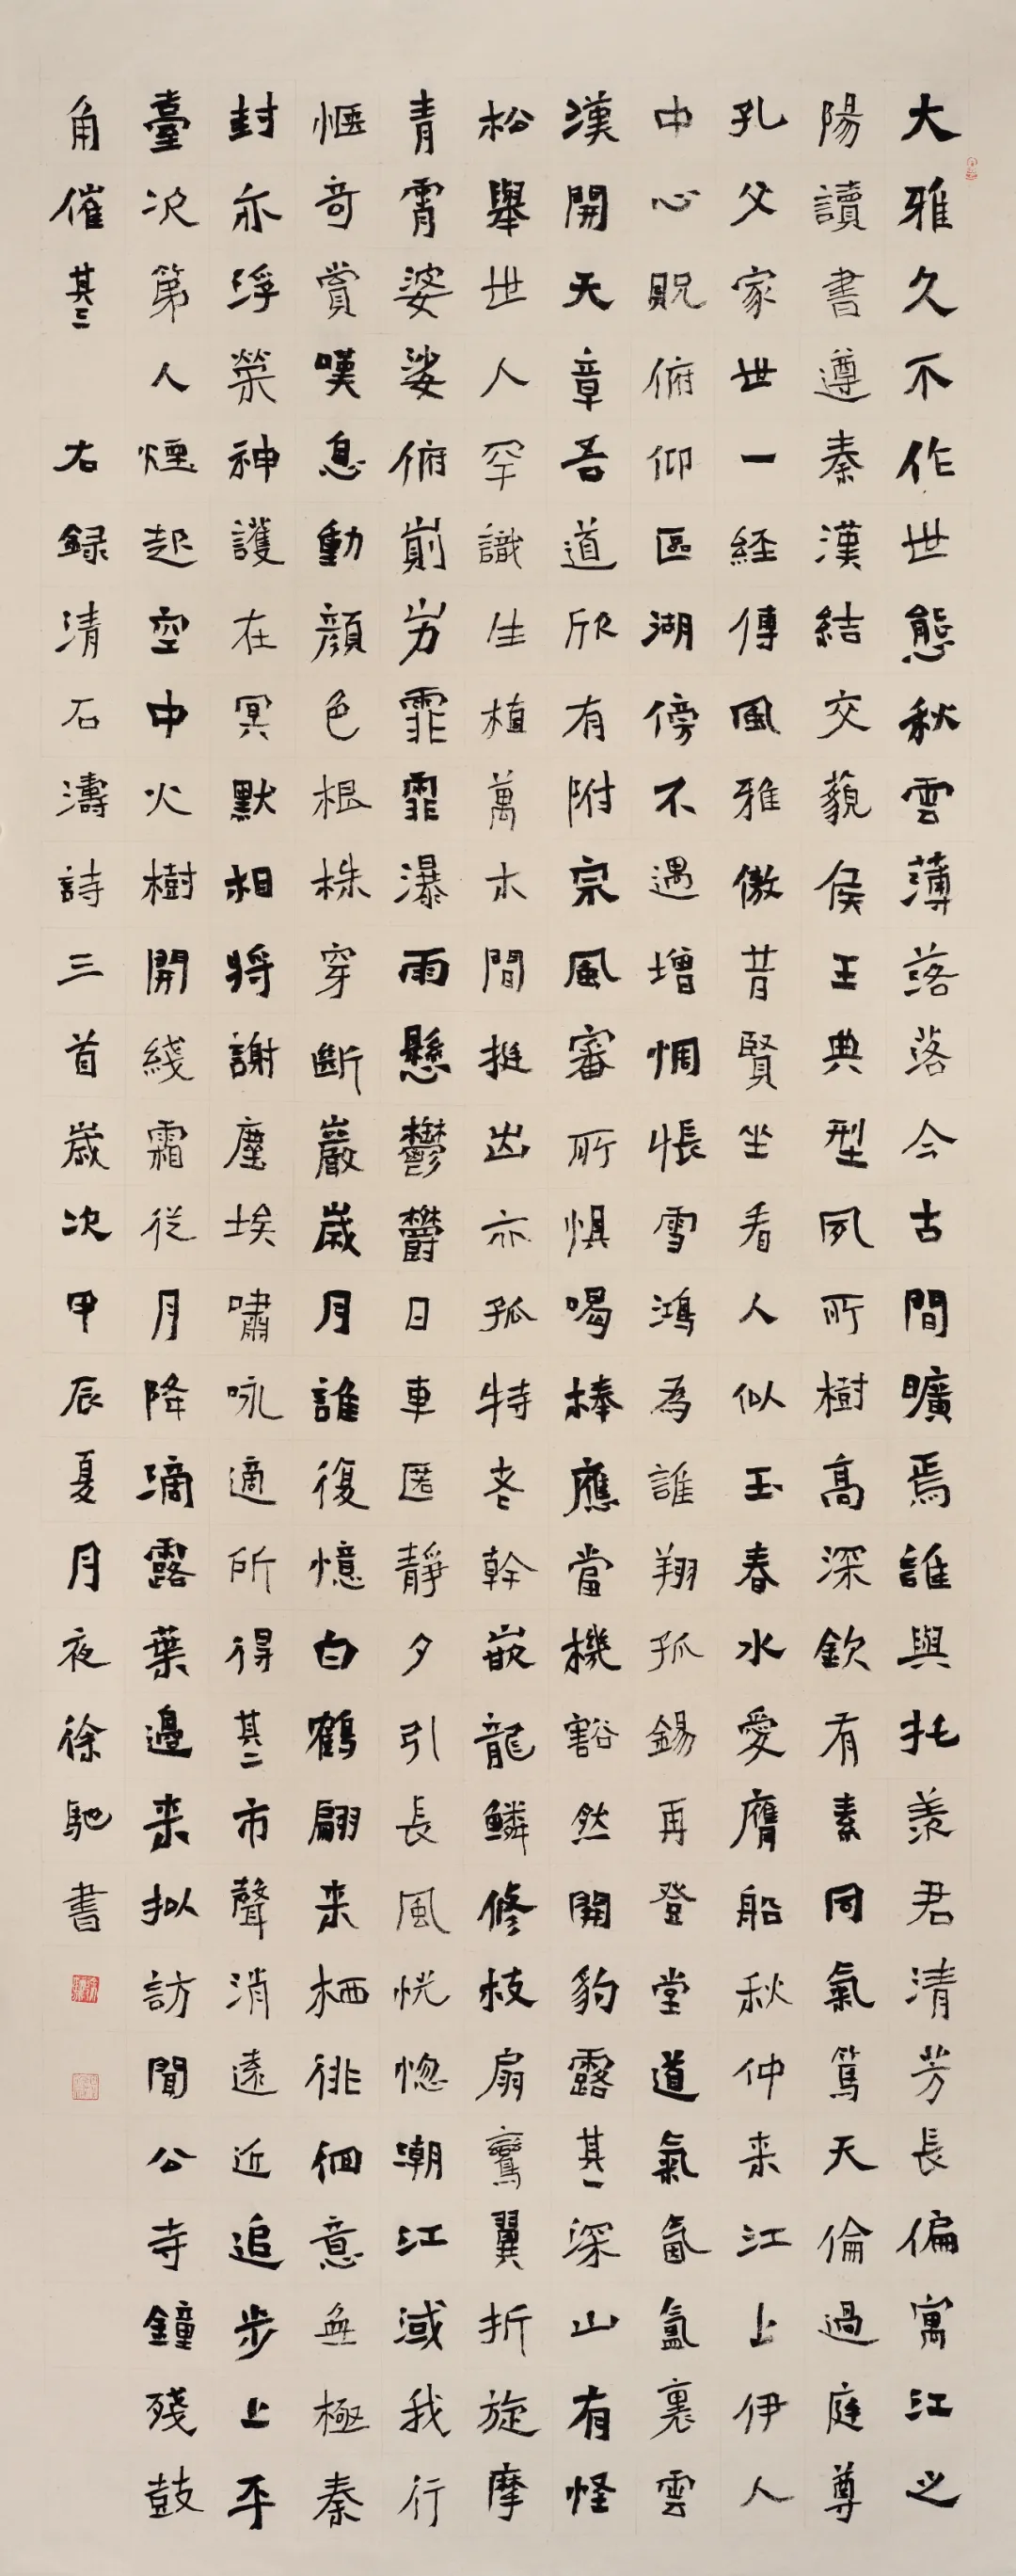 大雅久不作世態秋雲薄落落今古間曠焉誰與托羨君清芳長偏寓江之
陽讀書遵秦漢結交藐侯王典型夙所樹高深欽有素同氣篤天倫過庭尊
孔父家世一經傳風雅儆昔賢坐看人似玉春水愛膺船秋仲来江上伊人
中心貺俯仰區湖傍不遇增惆悵雪鴻為誰翔孤錫再登堂道氣氤氳裏雲
漢開天章吾道欣有附宗風審所惧喝棒應當機豁然開豹露其一深山有怪
松舉世人罕識生植萬木間挺出亦孤特老幹嵌龍鱗修枝扇鸞翼折旋摩
青霄婆娑俯崱屴霏霏瀑雨懸鬱鬱日車匿靜夕引長風恍惚潮江淢我行
愜奇賞嘆息動顏色根株穿斷巖歲月誰復憶白鶴翩来栖徘徊意無極秦
封亦浮榮神護在冥默相將謝塵埃嘯咏適所得其二市聲消遠近追步上平
臺次第人煙起空中火樹開綫霜從月降滴露葉邊来拟訪聞公寺鐘殘鼓
角催其三 右録清石濤詩三首歲次甲辰夏月夜徐馳書